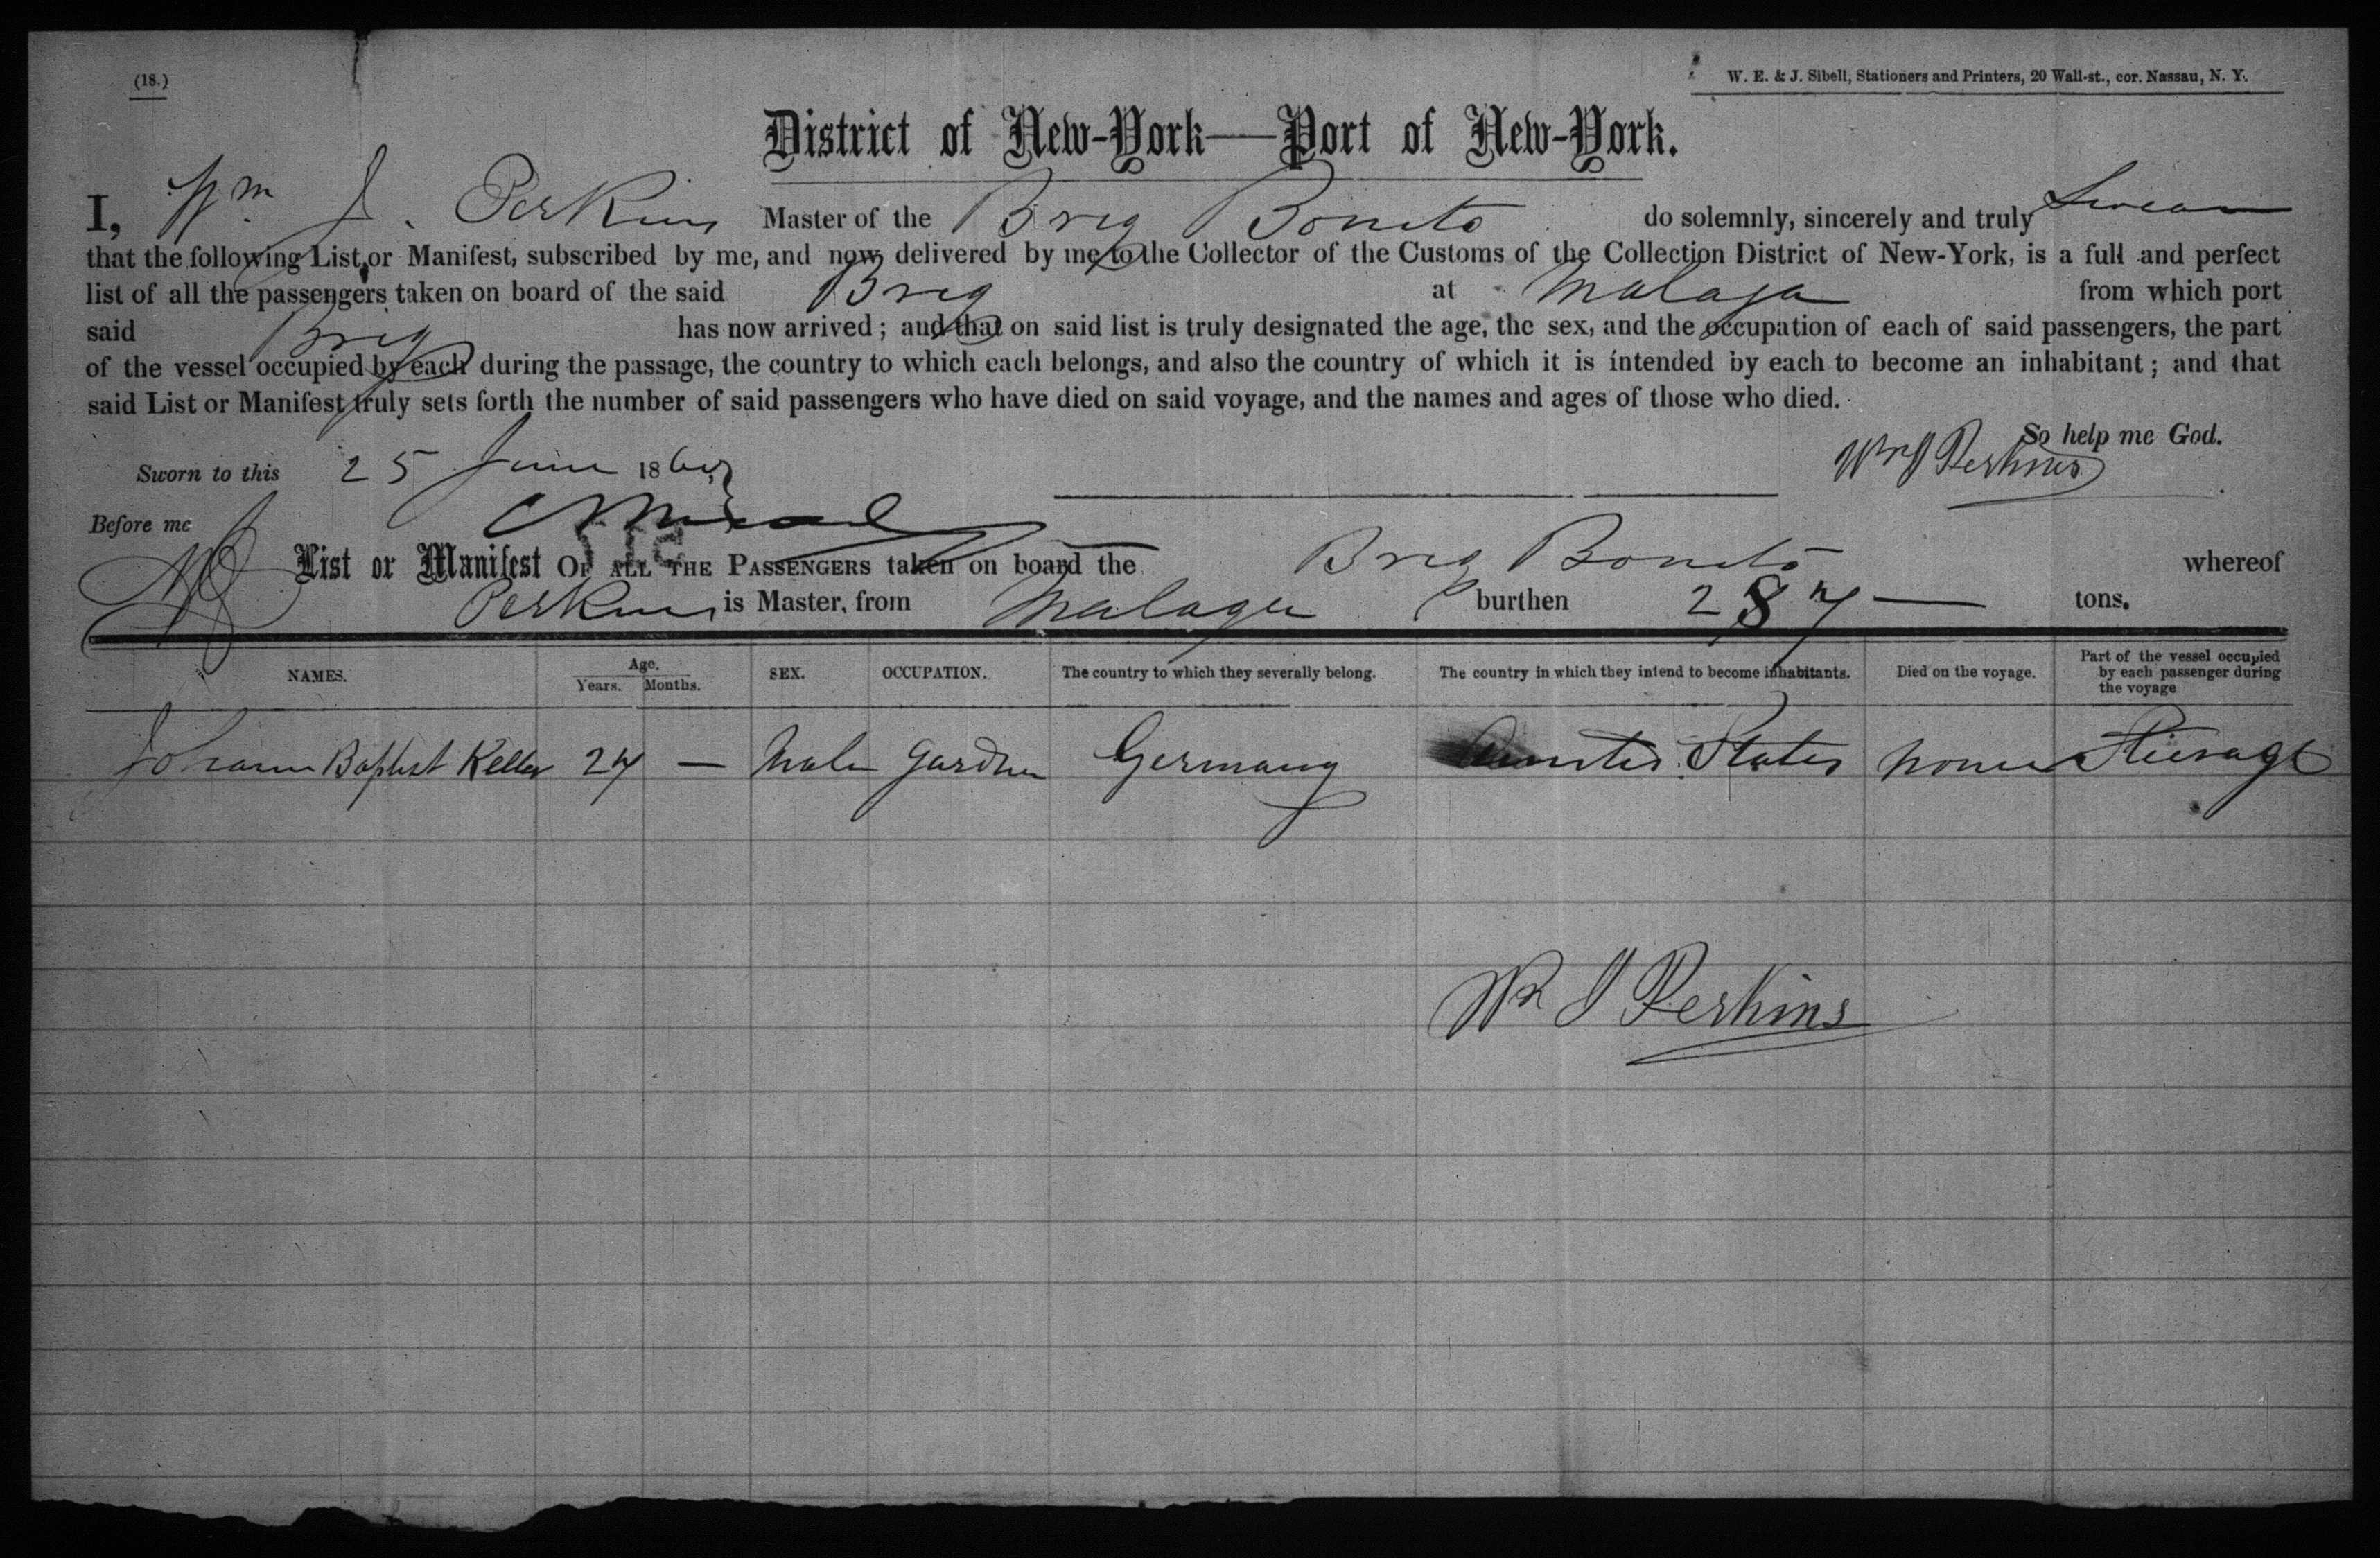 (18.)
W. E. & J. Sibell, Stationers and Printers, 20 Wall-st., cor. Nassau, N. Y.
District of New-York—Port of New-York.
I, Wm J. Perkins Master of the Brig Bonito do solemnly, sincerely and truly Swear
that the following List or Manifest, subscribed by me, and now delivered by me to the Collector of the Customs of the Collection District of New-York, is a full and perfect
list of all the passengers taken on board of the said Brig at Malaga from which port
said Brig has now arrived; and that on said list is truly designated the age, the sex, and the occupation of each of said passengers, the part
of the vessel occupied by each during the passage, the country to which each belongs, and also the country of which it is intended by each to become an inhabitant; and that
said List or Manifest truly sets forth the number of said passengers who have died on said voyage, and the names and ages of those who died.
So help me God.
Wm J Perkins
Sworn to this 25 June 186
Before me
List or Manifest OF ALL THE PASSENGERS taken on board the Brig Bonito whereof
Perkins is Master, from Malaga burthen 287 — tons.
NAMES. Age. Years. Months. SEX. OCCUPATION. The country to which they severally belong. The country in which they intend to become inhabitants. Died on the voyage. Part of the vessel occupied by each passenger during the voyage
Johann Baptist Keller 27 — Male Gardner Germany United States none Steerage
Wm J Perkins